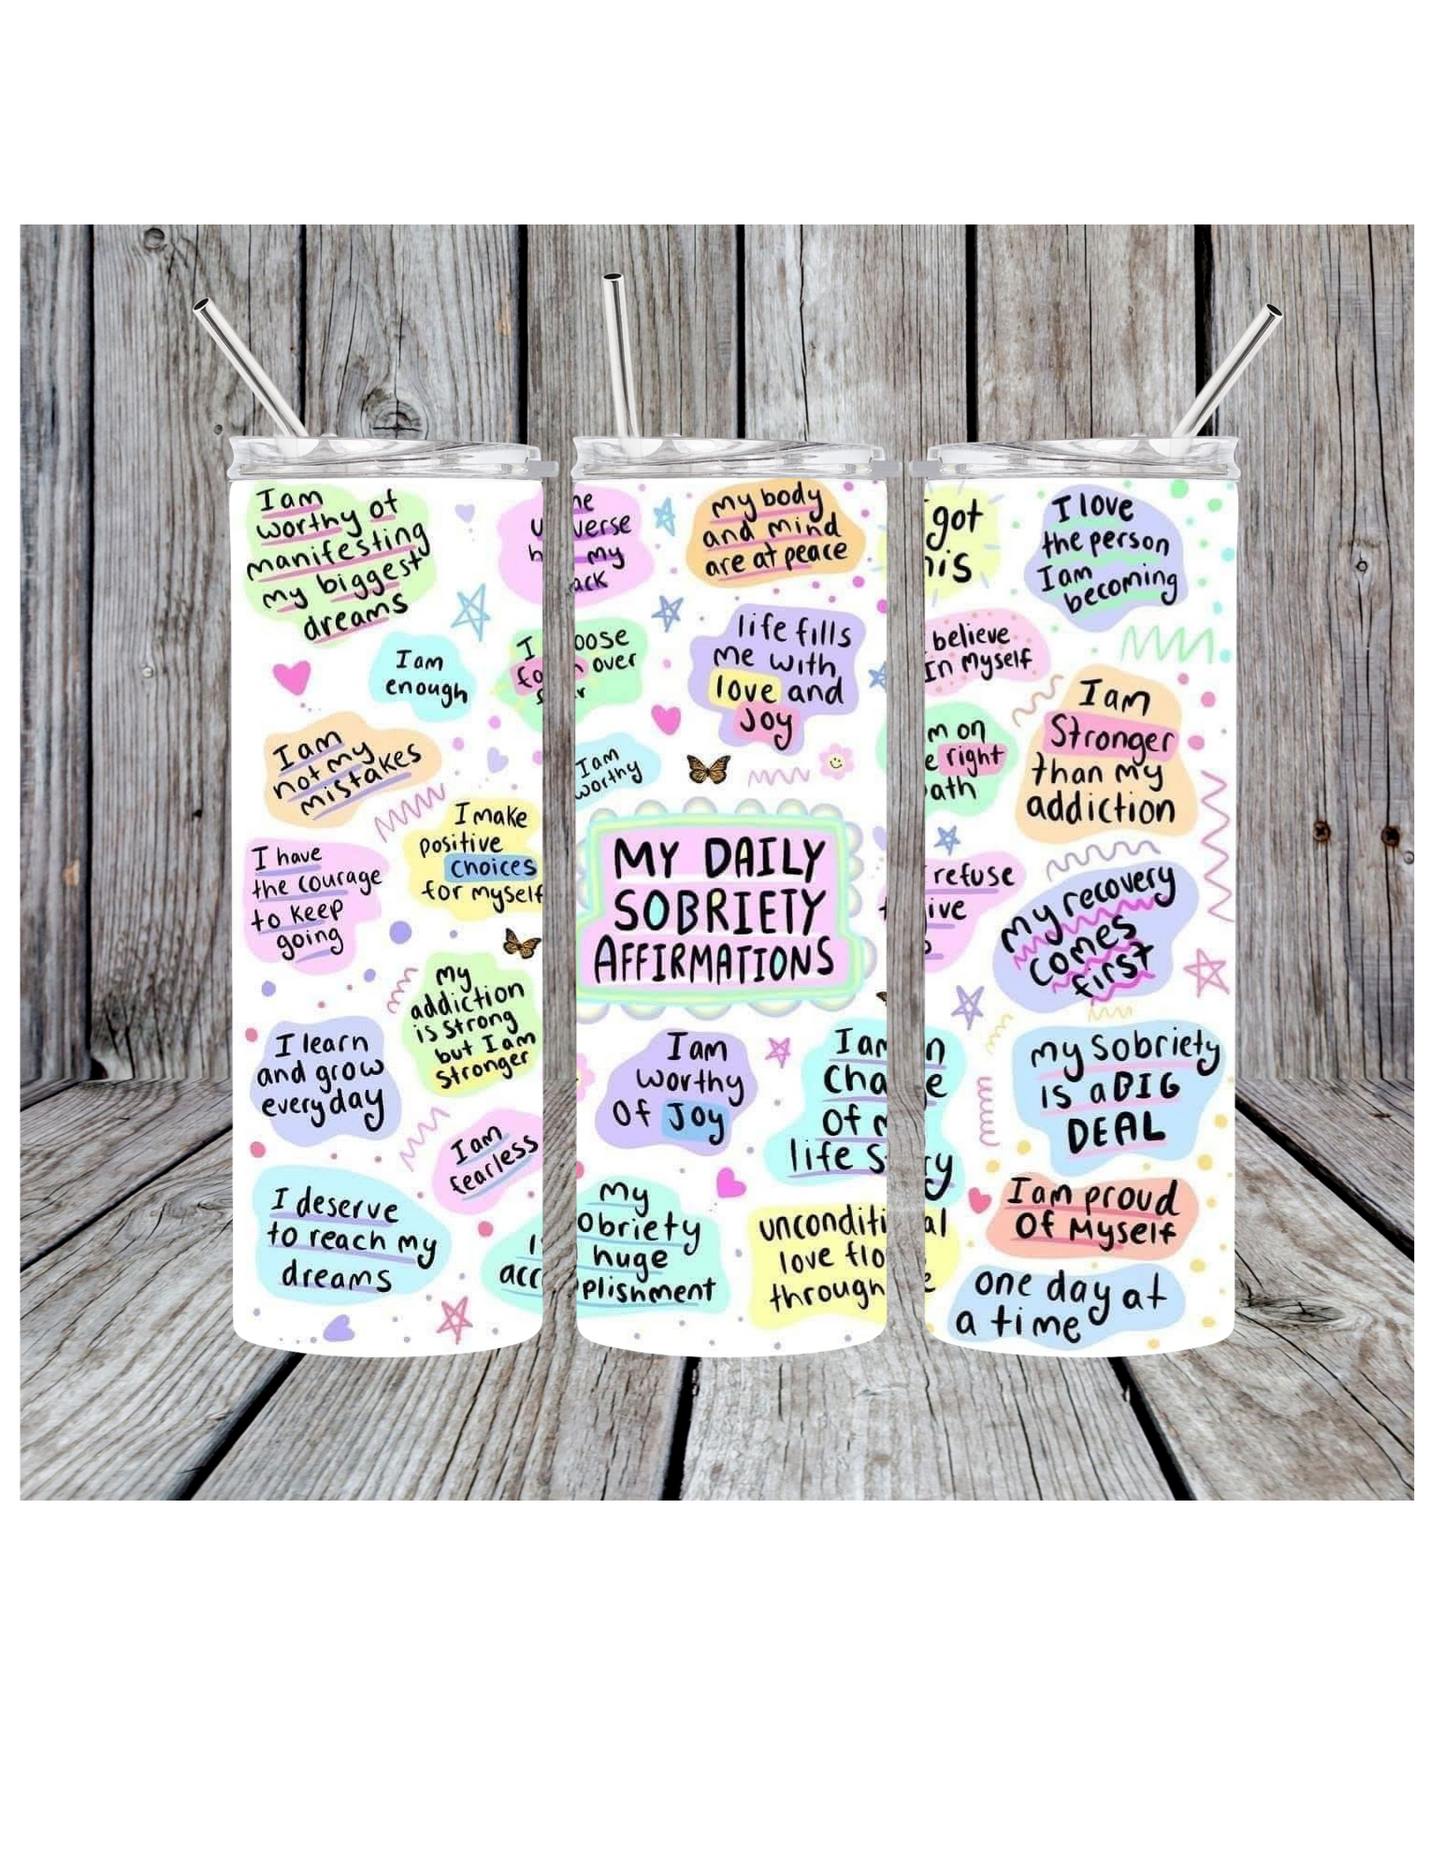 I am
worthy of
manifesting
my biggest
dreams
I am
enough
I am
not my
mistakes
I make
positive
choices
for myself
I have
the courage
to keep
going
My
addiction
is strong
but I am
Stronger
I learn
and grow
everyday
I am
fearless
I deserve
to reach my
dreams
my
my body
and mind
are at peace
oose
over
life fills
me with
love and
Joy
I am
worthy
MY DAILY
SOBRIETY
AFFIRMATIONS
I am
worthy
Of Joy
I am
Of
life
My
obriety
huge
plishment
unconditi
love flo
through
got
his
I love
the person
I am
becoming
believe
In Myself
I am
Stronger
than my
addiction
m on
e right
ath
refuse
ive
my recovery
comes
first
my sobriety
is a BIG
DEAL
I am proud
Of Myself
one day at
a time